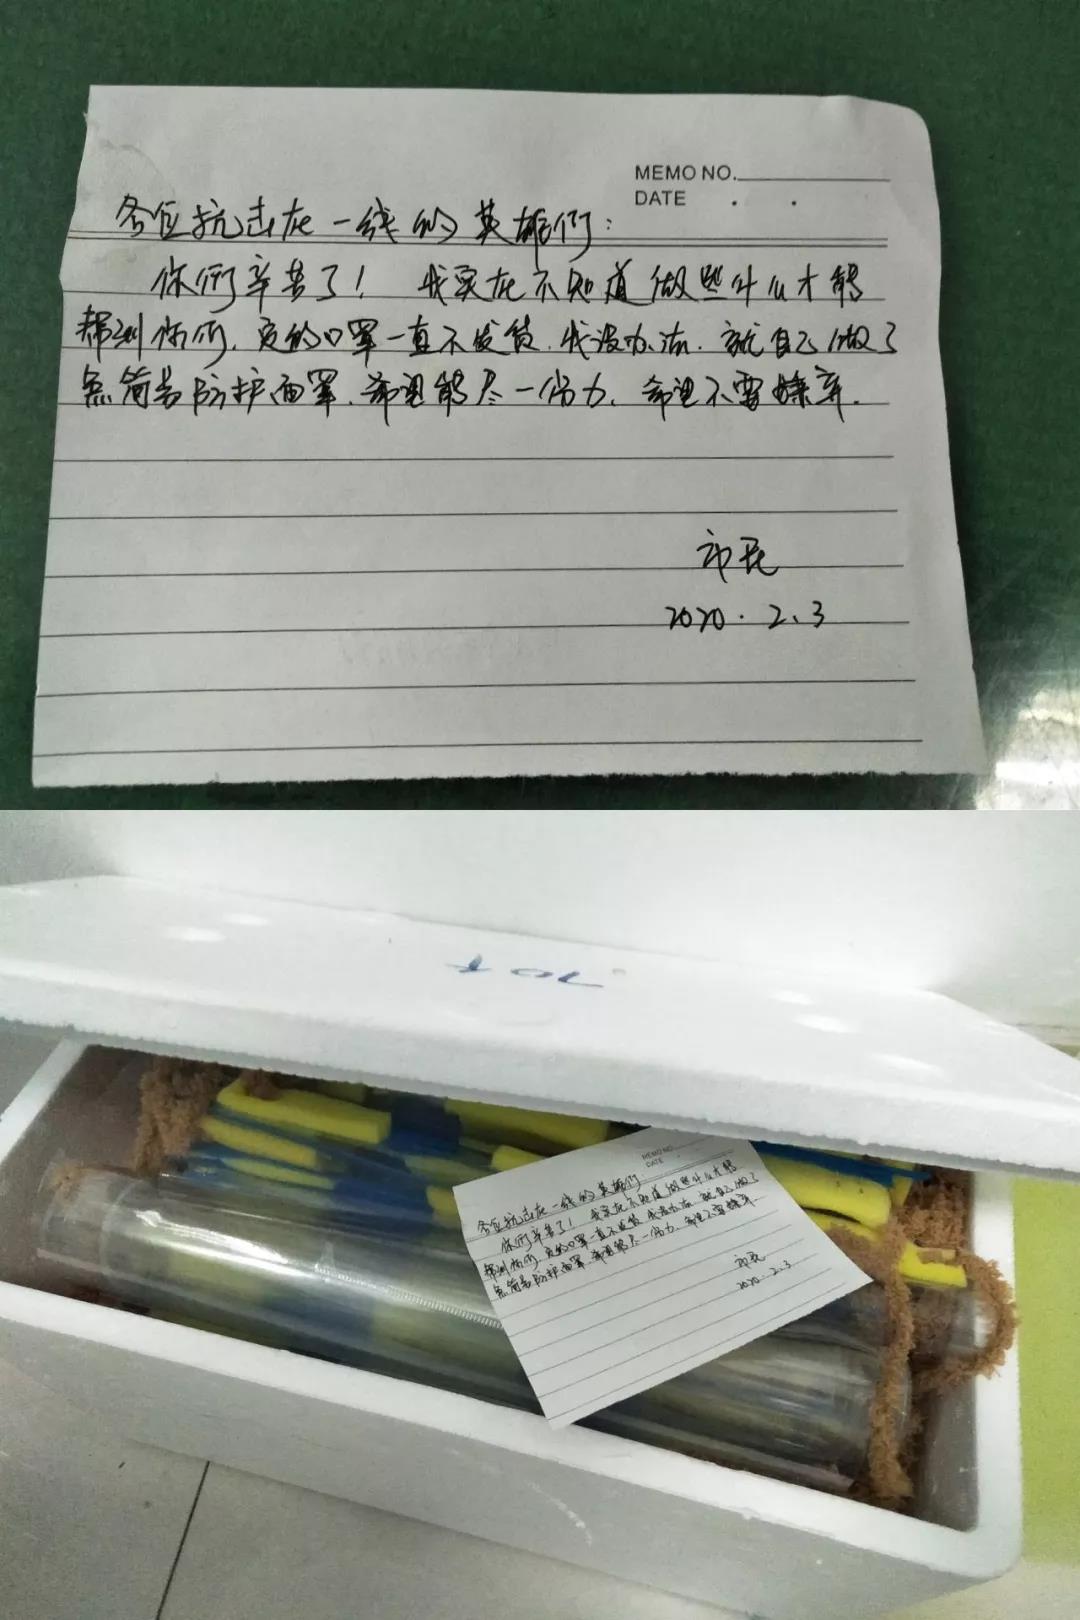 MEMO NO.
DATE . .
各位抗击在一线的英雄们:
你们辛苦了! 我实在不知道做些什么才能
帮到你们,买的口罩一直不发货,我没办法,就自己做了
点简易防护面罩,希望能尽一份力,希望不要嫌弃.
市民
2020.2.3
MEMO NO.
DATE
各位抗击在一线的英雄们:
你们辛苦了! 我实在不知道做些什么才能
帮到你们,买的口罩一直不发货,我没办法,就自己做了
点简易防护面罩,希望能尽一份力,希望不要嫌弃.
市民
2020.2.3